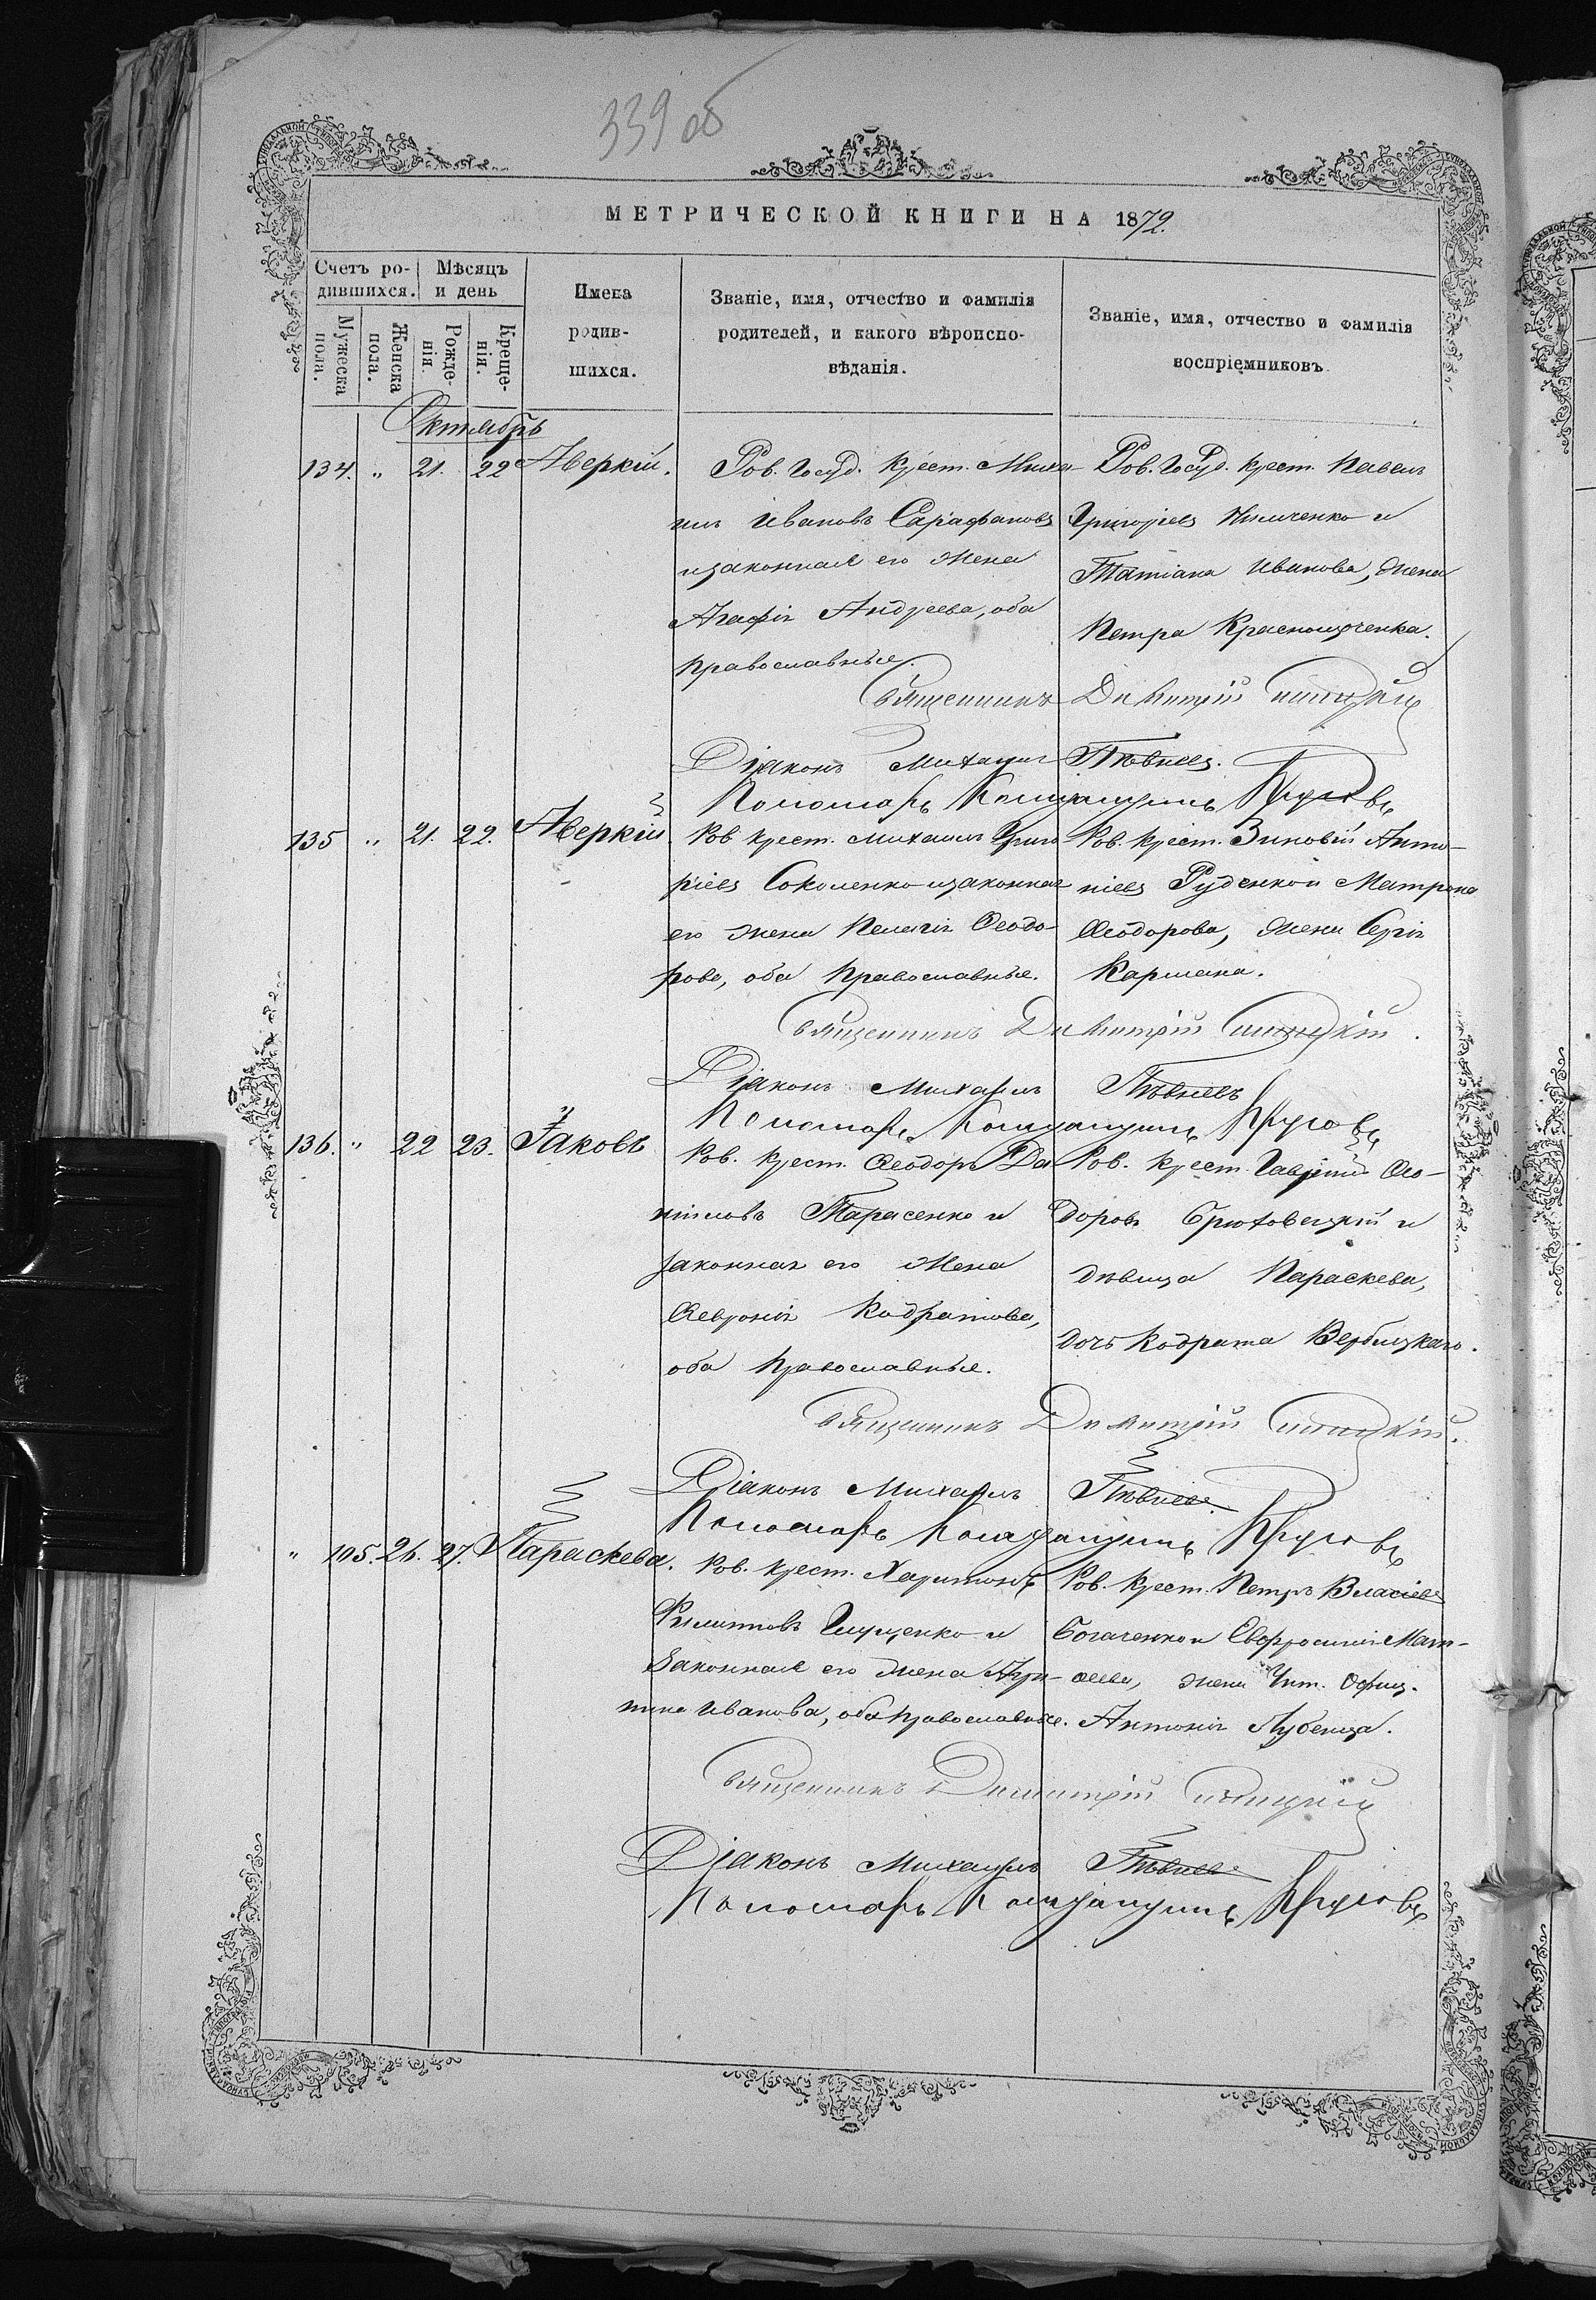 339 об
МЕТРИЧЕСКОЙ КНИГИ НА 1872.
Счетъ ро-
дившихся.
Мѣсяцъ
и день
Мужеска
пола.
Женска
пола.
Рожде-
нія.
Креще-
нія.
Имена
родив-
шихся.
Званіе, имя, отчество и фамилія
родителей, и какого вѣроиспо-
вѣданія.
Званіе, имя, отчество и фамилія
воспріемниковъ.
Октябрь
134. " 21. 22 Аверкій.
Ров. Госуд. крест. Миха-
илъ Ивановъ Сарафановъ
и законная его жена
Агафія Андреева, оба
православные.
Ров. Госуд. крест. Павелъ
Григорьевъ и
Татіана Иванова, жена
Петра
Священникъ Димитрій
Діаконъ Михаилъ Пѣвневъ.
Пономарь Константинъ
135 " 21. 22. Аверкій.
Ров. крест. Михаилъ Григо-
ріевъ Соколенко и законная
его жена Пелагія Ѳеодо-
рова, оба православные.
Ров. крест. Зиновій Анто-
ніевъ Руденко и Матрона
Ѳеодорова, жена Сергія
Кармана.
Священникъ Димитрій
Діаконъ Михаилъ Пѣвневъ
Пономарь Константинъ
136. " 22 23. Іаковъ
Ров. крест. Ѳеодоръ Да-
ніиловъ Тарасенко и
законная его жена
Ѳевронія Кодратова,
оба православные.
Ров. крест. Гавріилъ Ѳео-
доровъ Брюховецкій и
дѣвица Параскева,
дочь Кодрата Вербицкаго.
Священникъ Димитрій
Діаконъ Михаилъ Пѣвневъ
Пономарь Константинъ
" 105. 26. 27. Параскева.
Ров. крест. Харитонъ
Филиповъ Глущенко и
законная его жена Агри-
пина Иванова, оба православные.
Ров. крест. Петръ Власіевъ
Богаченко и Евфросинія Мат-
ѳеева, жена Унт. Офиц.
Антонія Лубенца.
Священникъ Димитрій
Діаконъ Михаилъ Пѣвневъ
Пономарь Константинъ